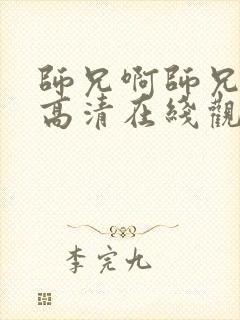 師兄啊師兄
高清在綫觀
李完九